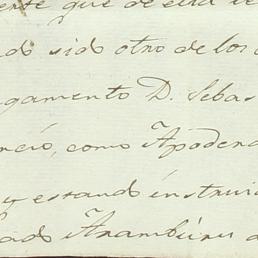 ente que de ella se
ado sido otro de los
gamento D. Sebas
rció, como Apodera
y estando instrui
sado Aramburu